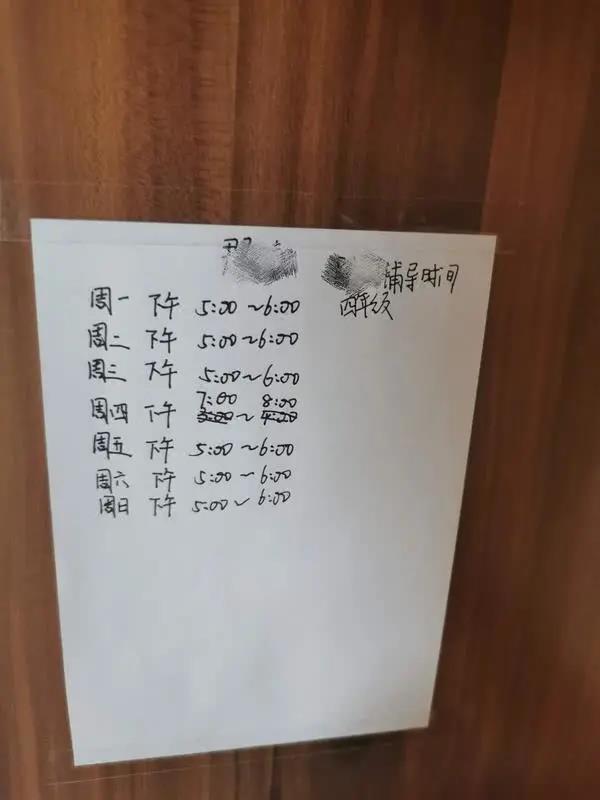 辅导时间
四年级
周一 下午 5:00~6:00
周二 下午 5:00~6:00
周三 下午 5:00~6:00
7:00 8:00
周四 下午 3:00~4:00
周五 下午 5:00~6:00
周六 下午 5:00~6:00
周日 下午 5:00~6:00